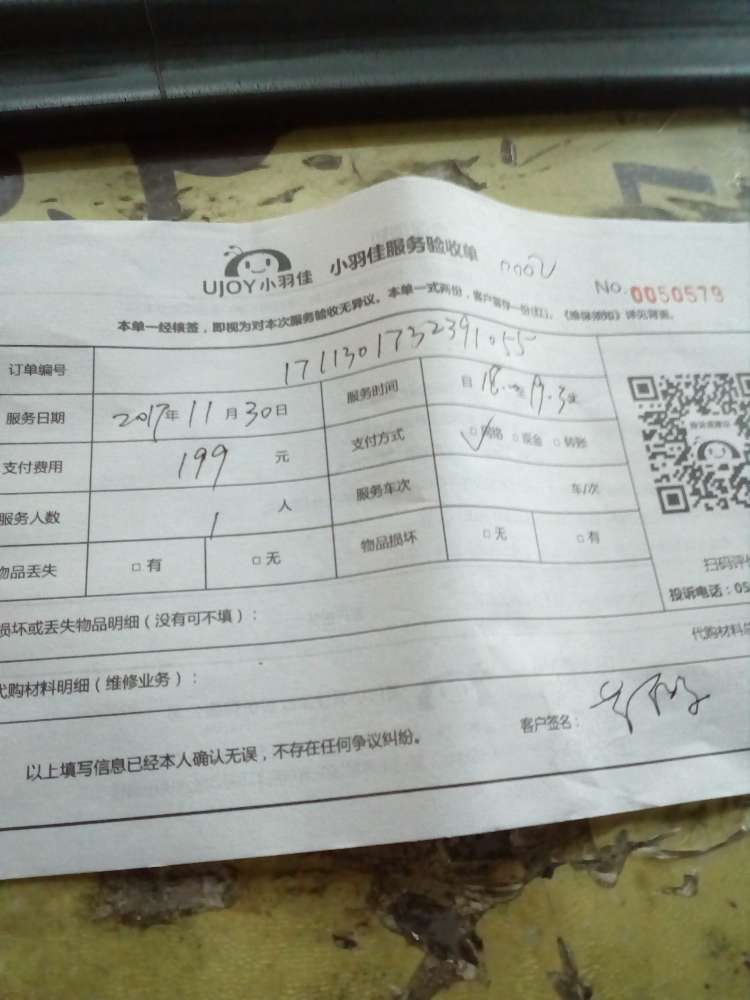 UJOY小羽佳 小羽佳服务验收单 0002
No. 0050579
本单一经核签，即视为对本次服务验收无异议。本单一式两份，客户留存一份(红)。《维保须知》详见背面。
订单编号 1711301732391055
服务日期 2017年 11月 30日 服务时间 自 18.
支付费用 199 元 支付方式 □网络 □现金 □转账
服务人数 1 人 服务车次 车/次
物品丢失 □有 □无 物品损坏 □无 □有
扫码评价
投诉电话：05
损坏或丢失物品明细（没有可不填）：
代购材料明细（维修业务）： 代购材料总
以上填写信息已经本人确认无误，不存在任何争议纠纷。 客户签名：